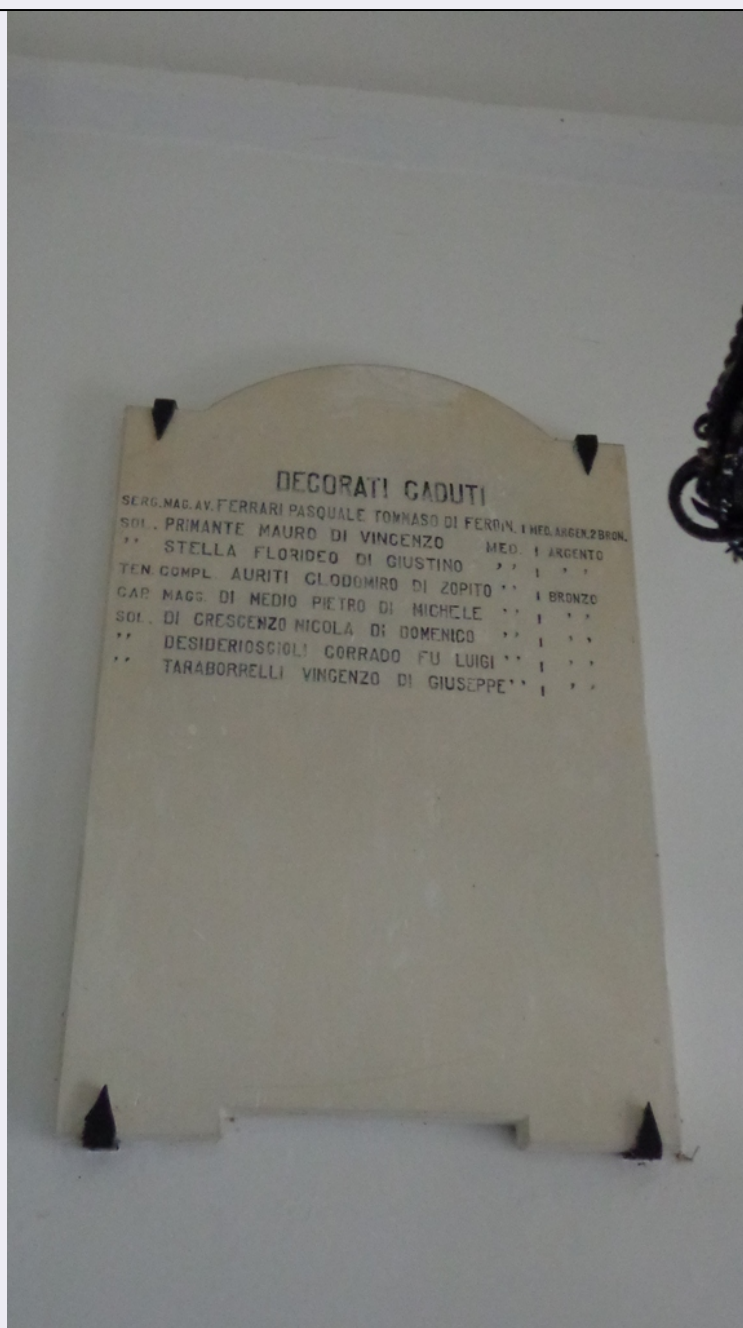 DECORATI CADUTI
SERG.MAG.AV. FERRARI PASQUALE TOMMASO DI FERDIN. 1 MED. ARGEN. 2 BRON.
SOL. PRIMANTE MAURO DI VINCENZO MED. 1 ARGENTO
'' STELLA FLORIDEO DI GIUSTINO '' 1 ''
TEN. COMPL. AURITI CLODOMIRO DI ZOPITO '' 1 BRONZO
CAP. MAGG. DI MEDIO PIETRO DI MICHELE '' 1 ''
SOL. DI CRESCENZO NICOLA DI DOMENICO '' 1 ''
'' DESIDERIOSCIOLI CORRADO FU LUIGI '' 1 ''
'' TARABORRELLI VINCENZO DI GIUSEPPE '' 1 ''